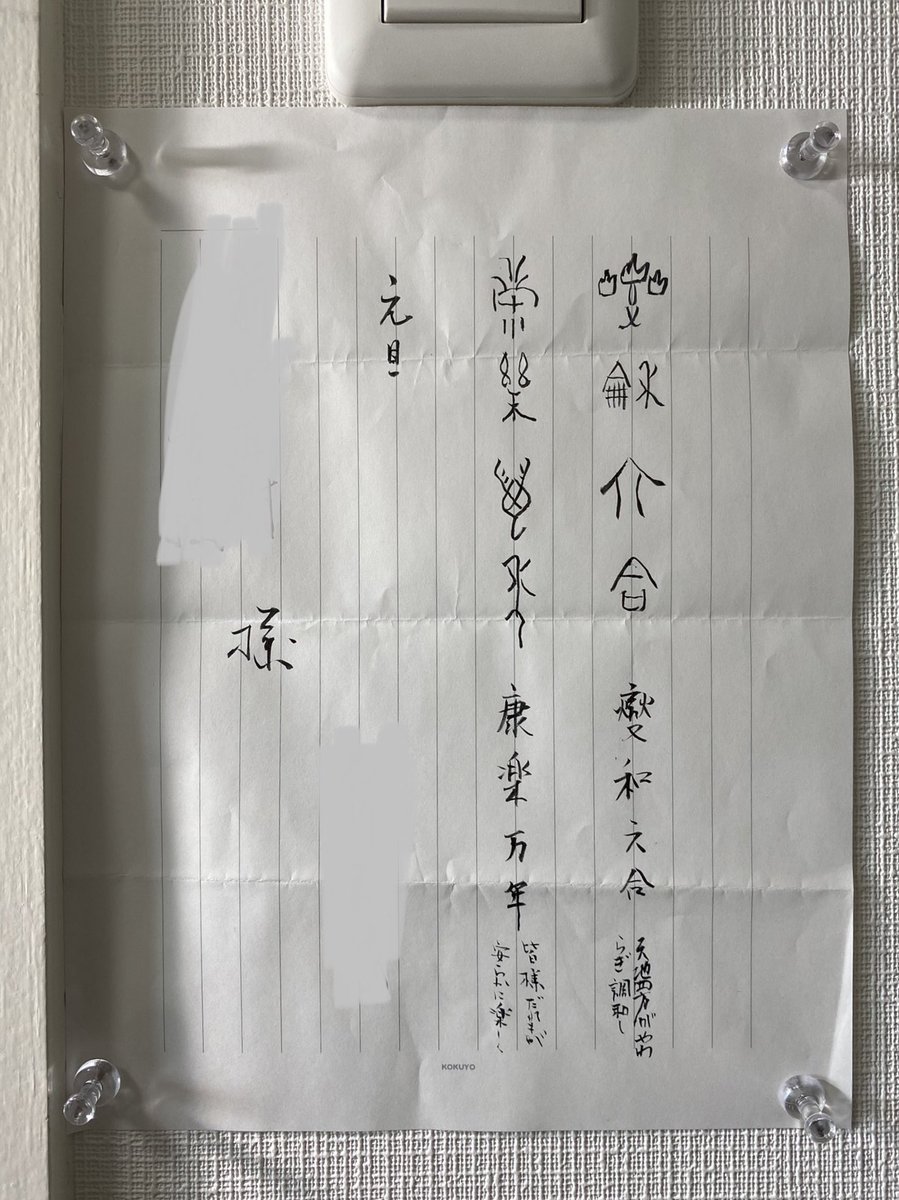 燮龢六合 燮和六合 天地四方がやわらぎ調和し
康樂萬年 康楽万年 皆様だれもが安らかに楽しく
元旦
様
KOKUYO